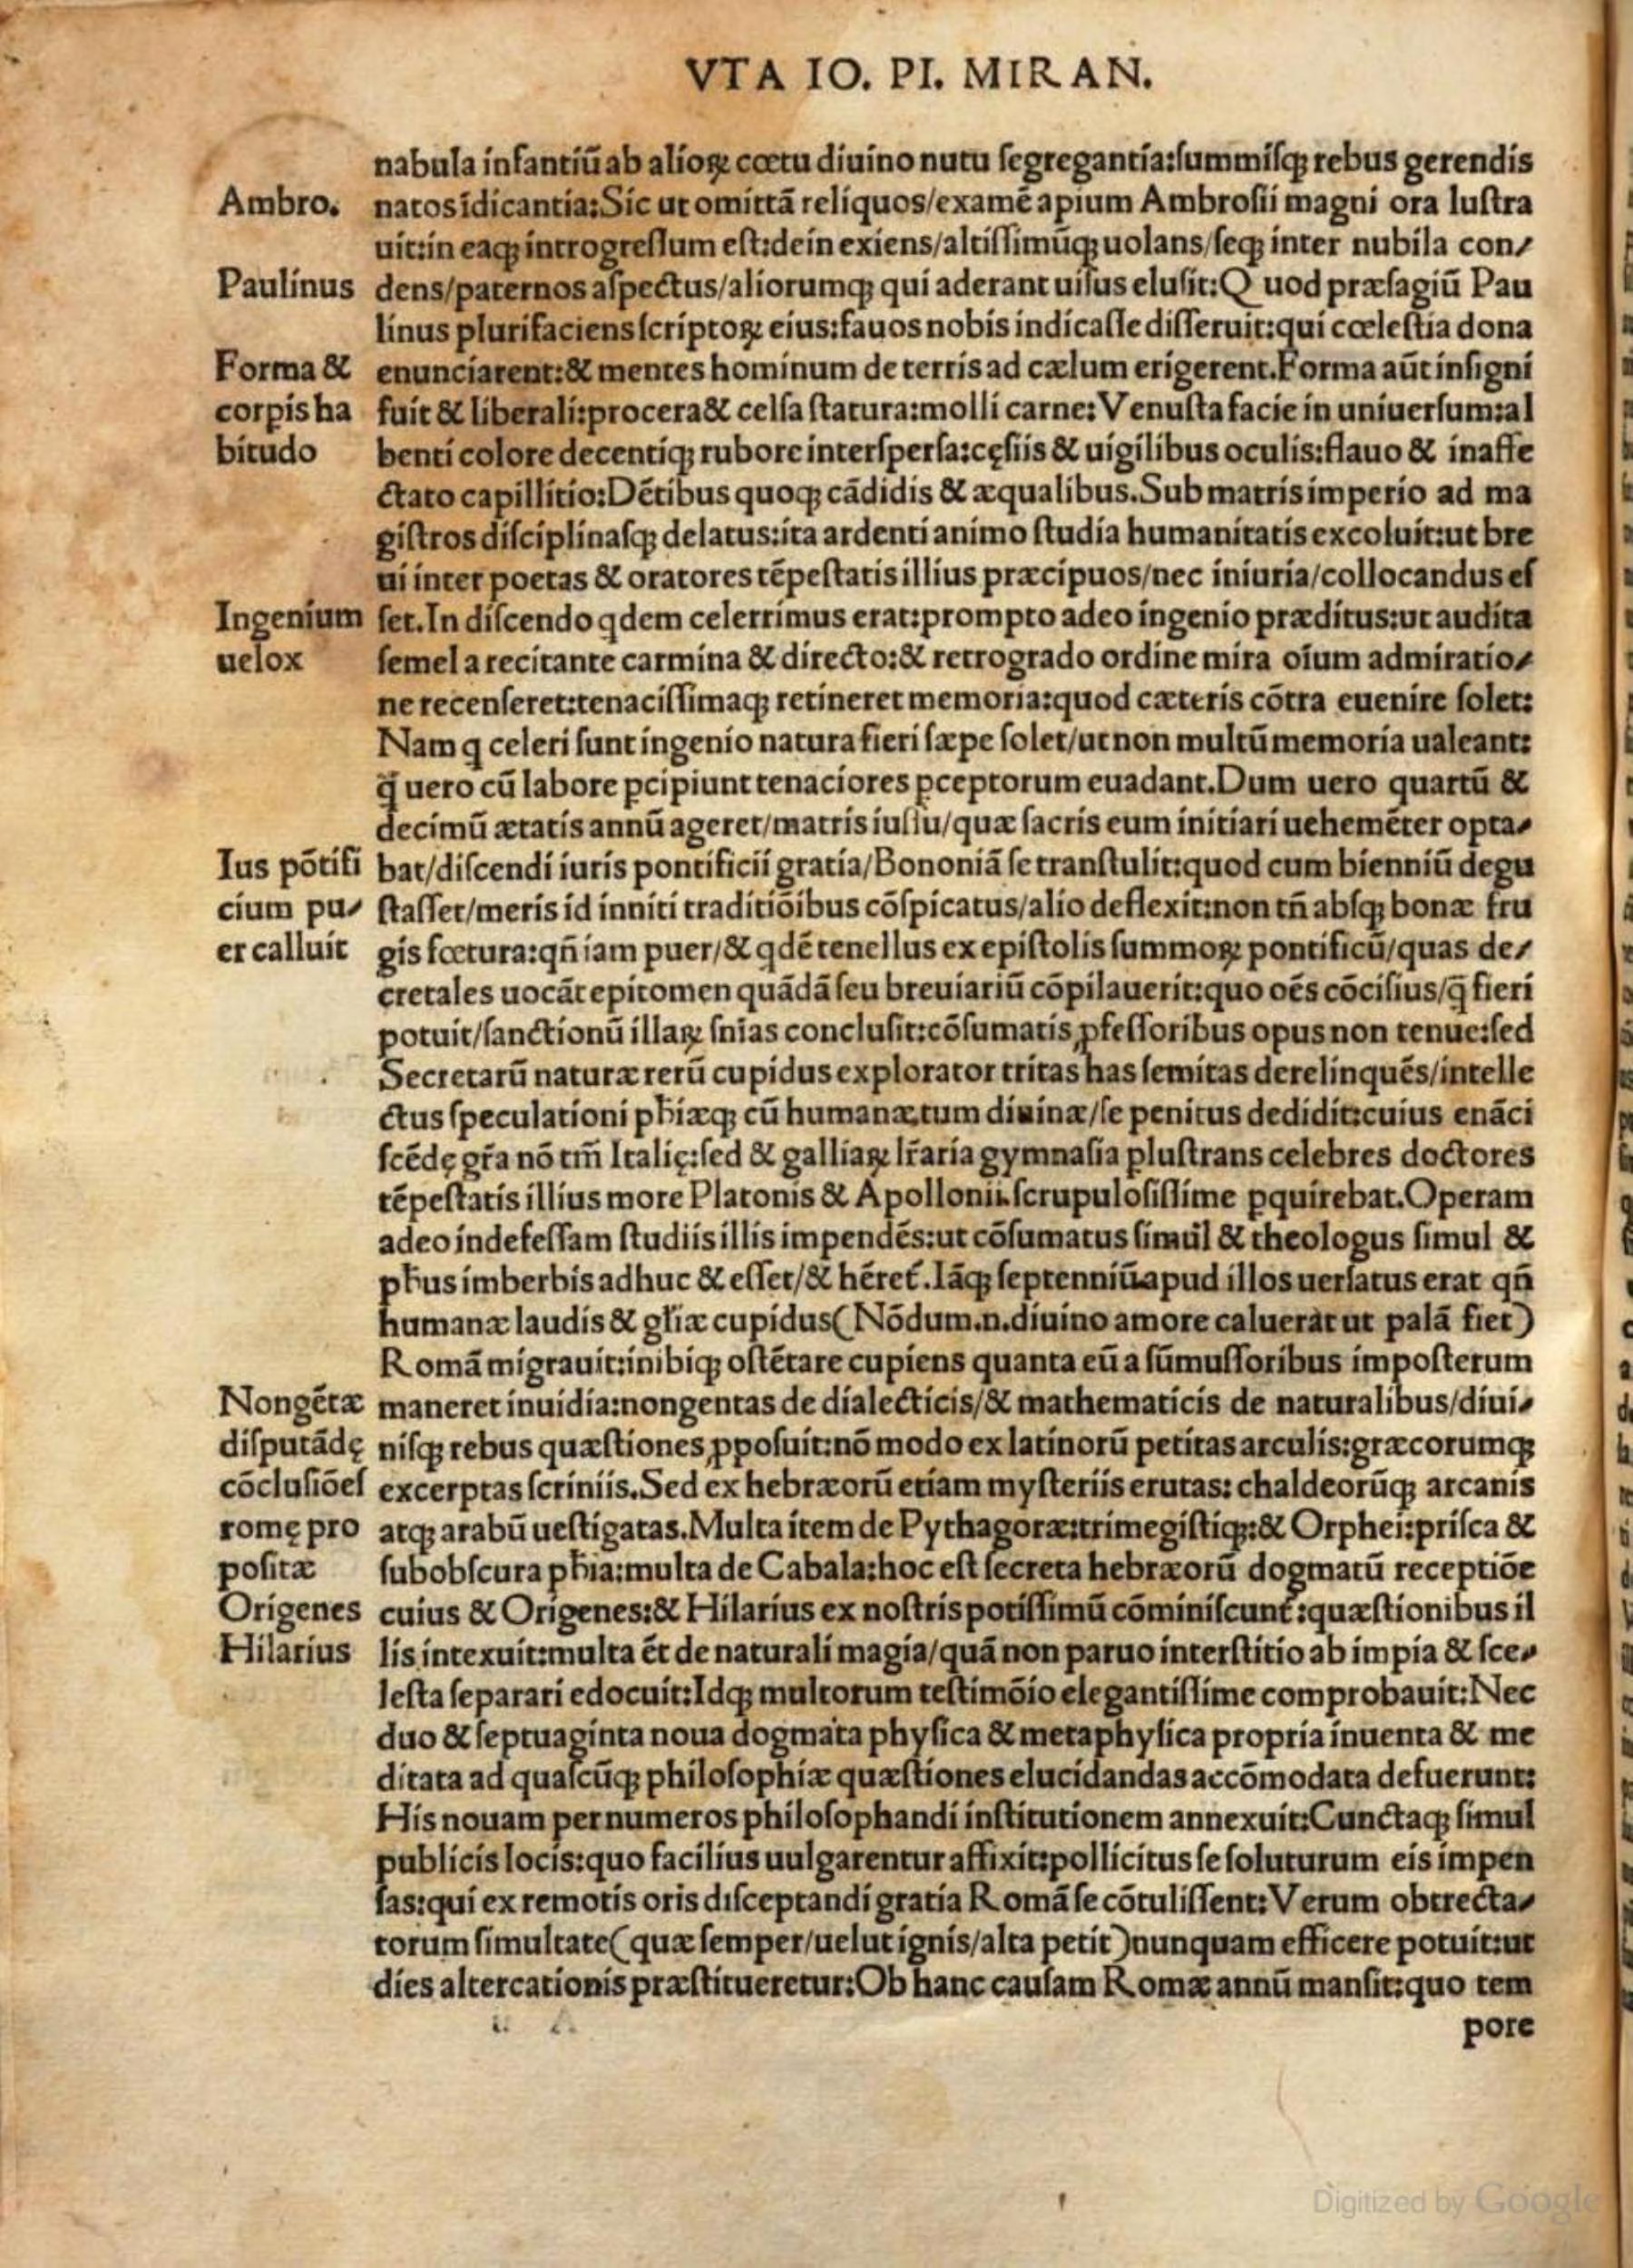 VTA IO. PI. MIRAN.
nabula infantiū ab alioꝝ cœtu diuino nutu ſegregantia:ſummiſqꝫ rebus gerendis
Ambro. natos īdicantia:Sic ut omittā reliquos/examē apium Ambroſii magni ora luſtra
uit:in eaqꝫ introgreſſum eſt:dein exiens/altiſſimūqꝫ uolans/ſeqꝫ inter nubila con/
Paulinus dens/paternos aſpectus/aliorumqꝫ qui aderant uiſus eluſit:Quod præſagiū Pau
linus plurifaciens ſcriptoꝝ eius:fauos nobis indicaſſe diſſeruit:qui cœleſtia dona
Forma & enunciarent:& mentes hominum de terris ad cælum erigerent.Forma aūt inſigni
corꝑis ha fuit & liberali:procera & celſa ſtatura:molli carne:Venuſta facie in uniuerſum:al
bitudo benti colore decentiqꝫ rubore interſperſa:cęſiis & uigilibus oculis:flauo & inaffe
ctato capillitio:Dētibus quoqꝫ cādidis & æqualibus.Sub matris imperio ad ma
giſtros diſciplinaſqꝫ delatus:ita ardenti animo ſtudia humanitatis excoluit:ut bre
ui inter poetas & oratores tēpeſtatis illius præcipuos/nec iniuria/collocandus eſ
Ingenium ſet.In diſcendo qdem celerrimus erat:prompto adeo ingenio præditus:ut audita
uelox ſemel a recitante carmina & directo:& retrogrado ordine mira oīum admiratio/
ne recenſeret:tenaciſſimaqꝫ retineret memoria:quod cæteris cōtra euenire ſolet:
Nam q celeri ſunt ingenio natura fieri ſæpe ſolet/ut non multū memoria ualeant:
q̄ uero cū labore ꝑcipiunt tenaciores ꝑceptorum euadant.Dum uero quartū &
decimū ætatis annū ageret/matris iuſſu/quæ ſacris eum initiari uehemēter opta/
Ius pōtifi bat/diſcendi iuris pontificii gratia/Bononiā ſe tranſtulit:quod cum bienniū degu
cium pu/ ſtaſſet/meris id inniti traditiōibus cōſpicatus/alio deflexit:non tn̄ abſqꝫ bonæ fru
er calluit gis fœtura:qn̄ iam puer/& qdē tenellus ex epiſtolis ſummoꝝ pontificū/quas de/
cretales uocāt epitomen quādā ſeu breuiariū cōpilauerit:quo oēs cōciſius/q̄ fieri
potuit/ſanctionū illaꝝ ſnīas concluſit:cōſumatis ꝓfeſſoribus opus non tenue:ſed
Secretarū naturæ rerū cupidus explorator tritas has ſemitas derelinquēs/intelle
ctus ſpeculationi pħiæqꝫ cū humanæ,tum diuinæ/ſe penitus dedidit:cuius enāci
ſcēdę gr̄a nō tm̄ Italię:ſed & galliaꝝ lr̄aria gymnaſia ꝑluſtrans celebres doctores
tēpeſtatis illius more Platonis & Apollonii ſcrupuloſiſſime ꝑquirebat.Operam
adeo indefeſſam ſtudiis illis impendēs:ut cōſumatus ſimul & theologus ſimul &
pħus imberbis adhuc & eſſet/& hēret̄.Iāqꝫ ſeptenniū apud illos uerſatus erat qn̄
humanæ laudis & gl̄iæ cupidus(Nōdum.n.diuino amore caluerat ut palā fiet)
Romā migrauit:inibiqꝫ oſtētare cupiens quanta eū a ſūmuſſoribus impoſterum
Nongētæ maneret inuidia:nongentas de dialecticis/& mathematicis de naturalibus/diui/
diſputādę niſqꝫ rebus quæſtiones ꝓpoſuit:nō modo ex latinorū petitas arculis:græcorumqꝫ
cōcluſiōeſ excerptas ſcriniis.Sed ex hebræorū etiam myſteriis erutas:chaldeorūqꝫ arcanis
romę pro atqꝫ arabū ueſtigatas.Multa item de Pythagoræ:trimegiſtiqꝫ:& Orphei:priſca &
poſitæ ſubobſcura pħia:multa de Cabala:hoc eſt ſecreta hebræorū dogmatū receptiōe
Origenes cuius & Origenes:& Hilarius ex noſtris potiſſimū cōminiſcunt̄:quæſtionibus il
Hilarius lis intexuit:multa ēt de naturali magia/quā non paruo interſtitio ab impia & ſce/
leſta ſeparari edocuit:Idqꝫ multorum teſtimōio elegantiſſime comprobauit:Nec
duo & ſeptuaginta noua dogmata phyſica & metaphyſica propria inuenta & me
ditata ad quaſcūqꝫ philoſophiæ quæſtiones elucidandas accōmodata defuerunt:
His nouam per numeros philoſophandi inſtitutionem annexuit:Cunctaqꝫ ſimul
publicis locis:quo facilius uulgarentur affixit:pollicitus ſe ſoluturum eis impen
ſas:qui ex remotis oris diſceptandi gratia Romā ſe cōtuliſſent:Verum obtrecta/
torum ſimultate(quæ ſemper/uelut ignis/alta petit)nunquam efficere potuit:ut
dies altercationis præſtitueretur:Ob hanc cauſam Romæ annū manſit:quo tem
pore
Digitized by Google